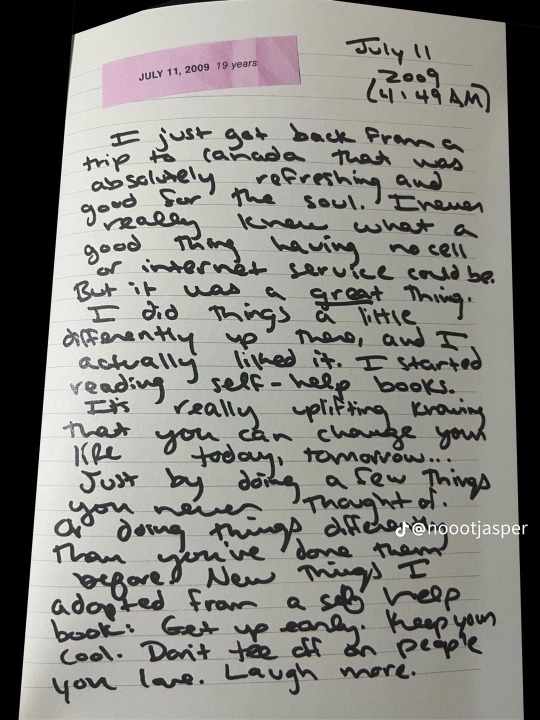 JULY 11, 2009 19 years
July 11
2009
(4:49 AM)
I just got back from a
trip to Canada that was
absolutely refreshing and
good for the soul. I never
really knew what a
good thing having no cell
or internet service could be.
But it was a great thing.
I did things a little
differently up there, and I
actually liked it. I started
reading self-help books.
It's really uplifting knowing
that you can change your
life today, tomorrow...
Just by doing a few things
you never thought of.
Or doing things differently
than you've done them
before! New things I
adopted from a self help
book: Get up early. Keep your
cool. Don't tee off on people
you love. Laugh more.
@noootjasper